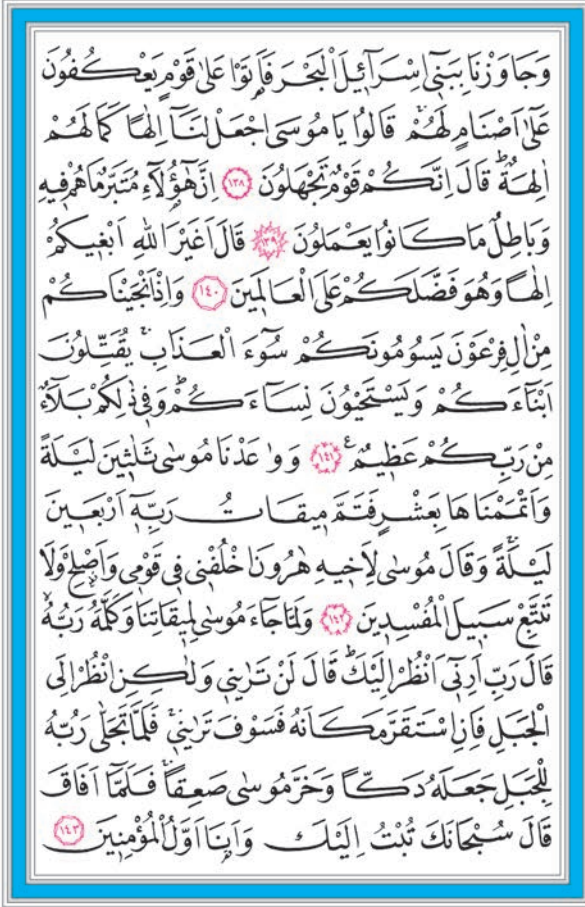 وَجَاوَزْنَا بِبَنٖٓي اِسْرَٓائٖلَ الْبَحْرَ فَاَتَوْا عَلٰى قَوْمٍ يَعْكُفُونَ
عَلٰٓى اَصْنَامٍ لَهُمْۚ قَالُوا يَا مُوسَى اجْعَلْ لَنَٓا اِلٰهًا كَمَا لَهُمْ
اٰلِهَةٌؕ قَالَ اِنَّكُمْ قَوْمٌ تَجْهَلُونَ ﴿١٣٨﴾ اِنَّ هٰٓؤُ۬لَٓاءِ مُتَبَّرٌ مَا هُمْ فٖيهِ
وَبَاطِلٌ مَا كَانُوا يَعْمَلُونَ ﴿١٣٩﴾ قَالَ اَغَيْرَ اللّٰهِ اَبْغٖيكُمْ
اِلٰهًا وَهُوَ فَضَّلَكُمْ عَلَى الْعَالَمٖينَ ﴿١٤٠﴾ وَاِذْ اَنْجَيْنَاكُمْ
مِنْ اٰلِ فِرْعَوْنَ يَسُومُونَكُمْ سُٓوءَ الْعَذَابِۚ يُقَتِّلُونَ
اَبْنَٓاءَكُمْ وَيَسْتَحْيُونَ نِسَٓاءَكُمْؕ وَفٖي ذٰلِكُمْ بَلَٓاءٌ
مِنْ رَبِّكُمْ عَظٖيمٌ۟ ﴿١٤١﴾ وَوٰعَدْنَا مُوسٰى ثَلٰثٖينَ لَيْلَةً
وَاَتْمَمْنَاهَا بِعَشْرٍ فَتَمَّ مٖيقَاتُ رَبِّهٖٓ اَرْبَعٖينَ
لَيْلَةًۚ وَقَالَ مُوسٰى لِاَخٖيهِ هٰرُونَ اخْلُفْنٖي فٖي قَوْمٖي وَاَصْلِحْ وَلَا
تَتَّبِعْ سَبٖيلَ الْمُفْسِدٖينَ ﴿١٤٢﴾ وَلَمَّا جَٓاءَ مُوسٰى لِمٖيقَاتِنَا وَكَلَّمَهُ رَبُّهُۙ
قَالَ رَبِّ اَرِنٖٓي اَنْظُرْ اِلَيْكَؕ قَالَ لَنْ تَرٰينٖي وَلٰكِنِ انْظُرْ اِلَى
الْجَبَلِ فَاِنِ اسْتَقَرَّ مَكَانَهُ فَسَوْفَ تَرٰينٖيۚ فَلَمَّا تَجَلّٰى رَبُّهُ
لِلْجَبَلِ جَعَلَهُ دَكًّا وَخَرَّ مُوسٰى صَعِقًاۚ فَلَمَّٓا اَفَاقَ
قَالَ سُبْحَانَكَ تُبْتُ اِلَيْكَ وَاَنَا۬ اَوَّلُ الْمُؤْمِنٖينَ ﴿١٤٣﴾